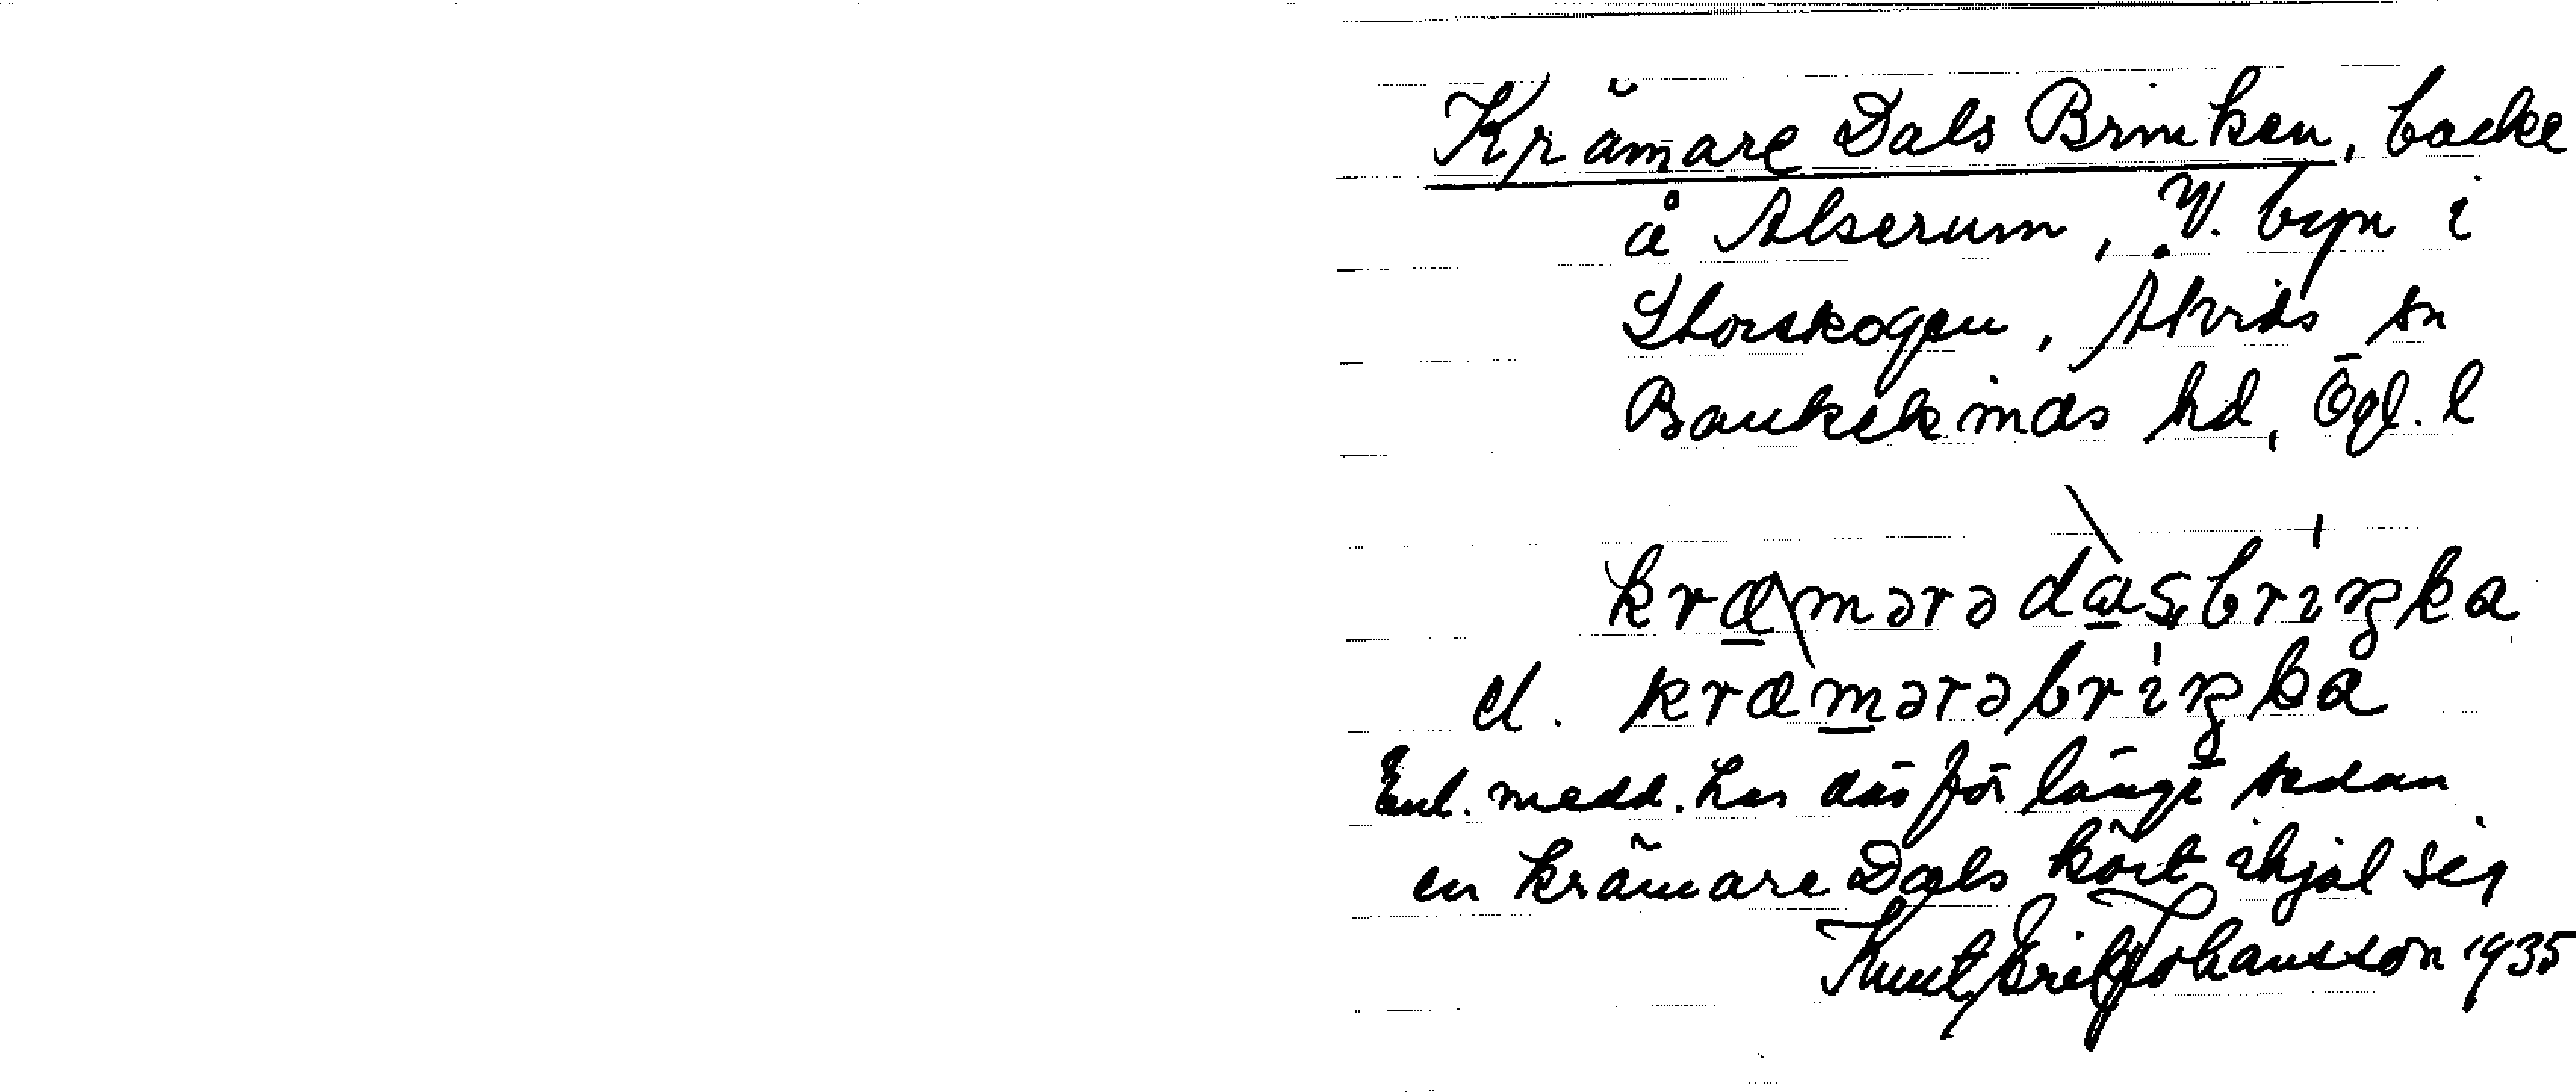 Krämare Dals Brinken, backe
å Alserum, V. byn i
Storskogen, Åtvids sn
Bankekinds hd, Ögl. l
kræmərədasbriŋka
el. kræmərəbriŋka
Enl. medd. har där för länge sedan
en krämare Dals kört ihjäl sig
Knut Erik Johansson 1935